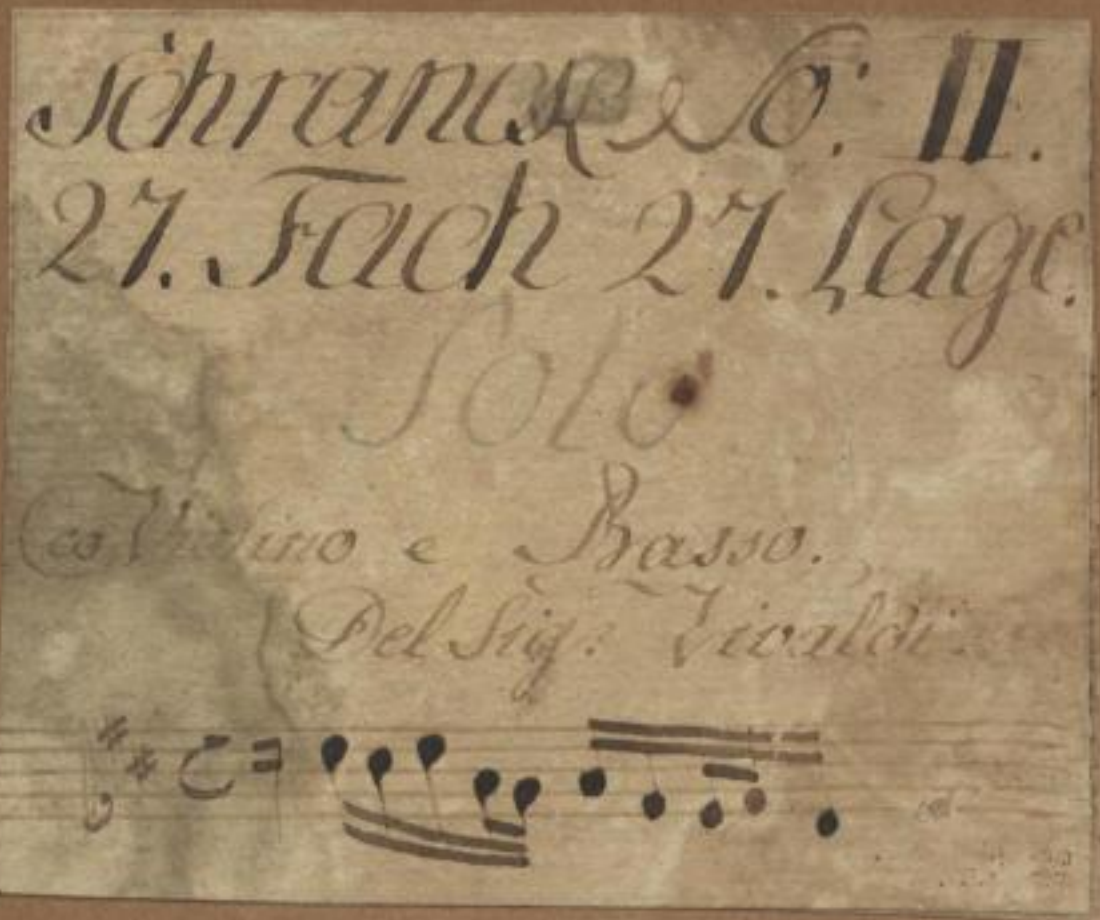 Schranck No: II.
27. Fach 27. Lage.
Solo
Co Violino e Basso.
Del Sig: Vivaldi.